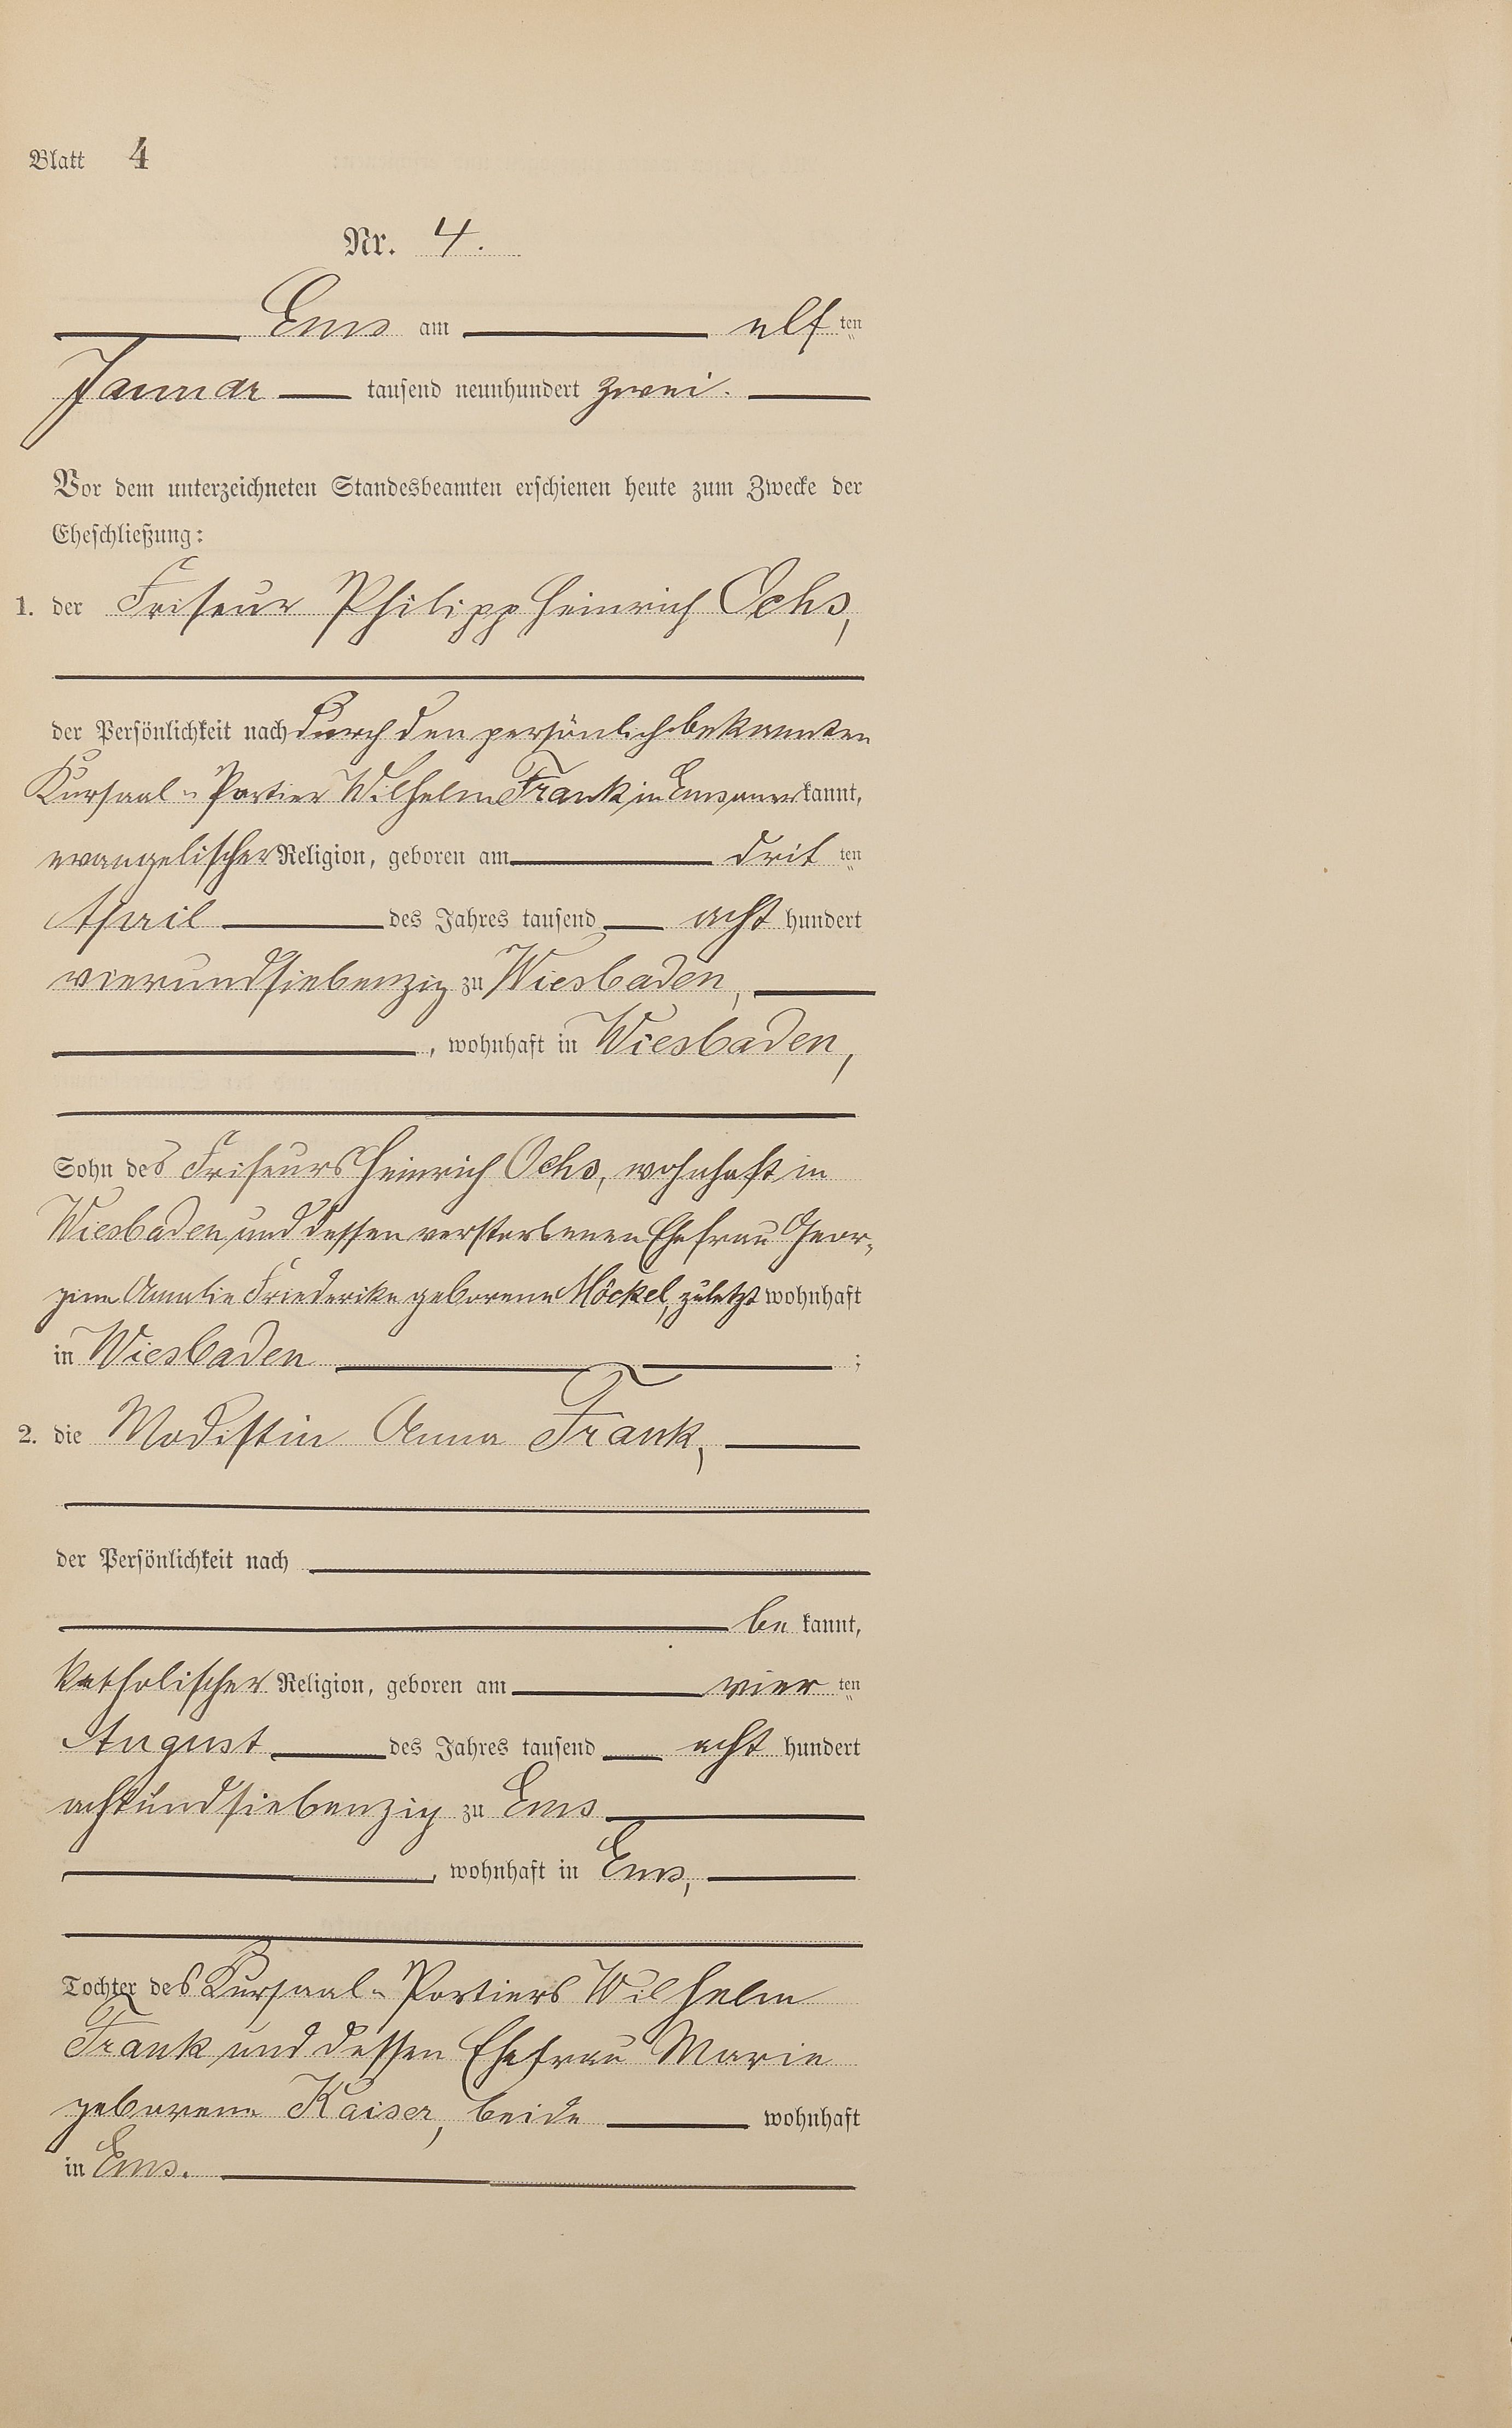 Blatt 4
Nr. 4.
Ems am elf ten
Januar tausend neunhundert zwei.
Vor dem unterzeichneten Standesbeamten erschienen heute zum Zwecke der
Eheschließung:
1. der Friseur Philipp Heinrich Ochs,
der Persönlichkeit nach durch den persönlich bekannten
Kursaal-Portier Wilhelm Frank in Ems anerkannt,
evangelischer Religion, geboren am drit ten
April des Jahres tausend acht hundert
vierundsiebenzig zu Wiesbaden,
, wohnhaft in Wiesbaden,
Sohn des Friseurs Heinrich Ochs, wohnhaft in
Wiesbaden und dessen verstorbenen Ehefrau Geor-
gine Amalie Friederike geborene Möckel, zuletzt wohnhaft
in Wiesbaden ;
2. die Modistin Anna Frank,
der Persönlichkeit nach
be kannt,
katholischer Religion, geboren am vier ten
August des Jahres tausend acht hundert
achtundsiebenzig zu Ems
, wohnhaft in Ems,
Tochter des Kursaal-Portiers Wilhelm
Frank und dessen Ehefrau Marie
geborene Kaiser, beide wohnhaft
in Ems.